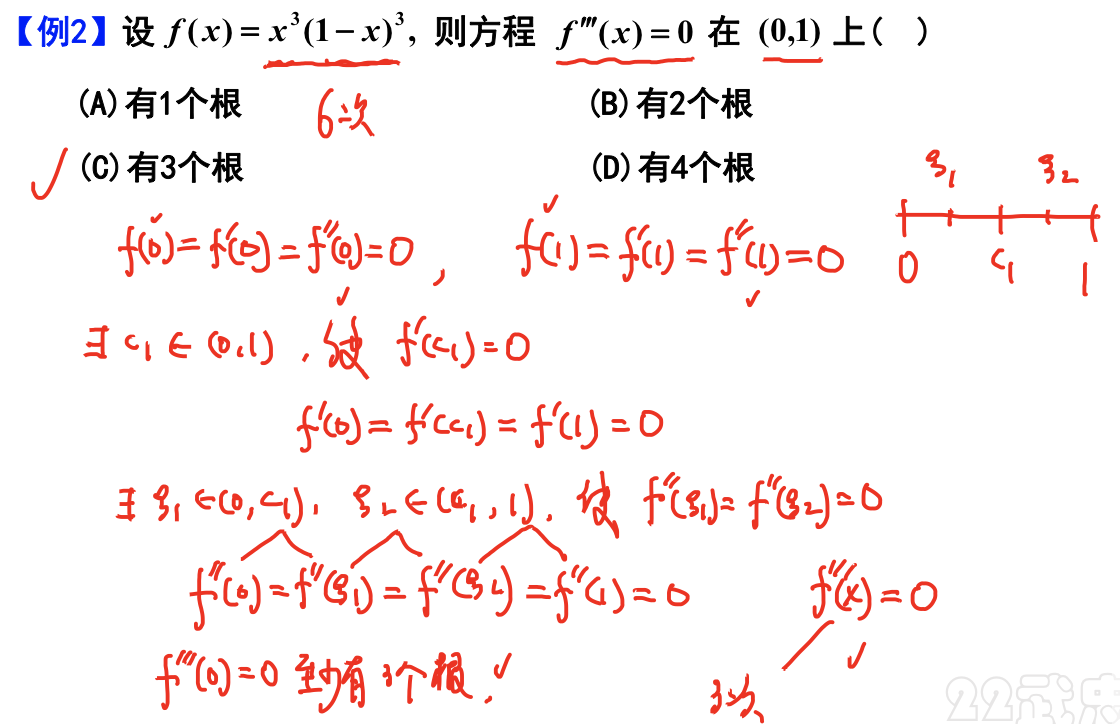 【例2】设 f(x) = x³(1 − x)³, 则方程 f‴(x) = 0 在 (0,1) 上( )
(A) 有1个根 (B) 有2个根
6次
(C) 有3个根 (D) 有4个根
✓
ξ₁ ξ₂
0 c₁ 1
f(0) = f′(0) = f″(0) = 0 , f(1) = f′(1) = f″(1) = 0
∃ c₁ ∈ (0,1) , 使 f′(c₁) = 0
f′(0) = f′(c₁) = f′(1) = 0
∃ ξ₁ ∈ (0,c₁), ξ₂ ∈ (c₁,1), 使 f″(ξ₁) = f″(ξ₂) = 0
f″(0) = f″(ξ₁) = f″(ξ₂) = f″(1) = 0 f‴(x) = 0
f‴(0) = 0 至少有3个根. ✓ 3次
22武忠